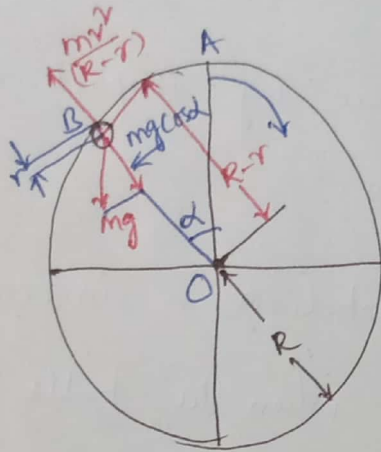 A
mv²
(R-r)
B
mgcosα
R-r
r
mg
α
O
R